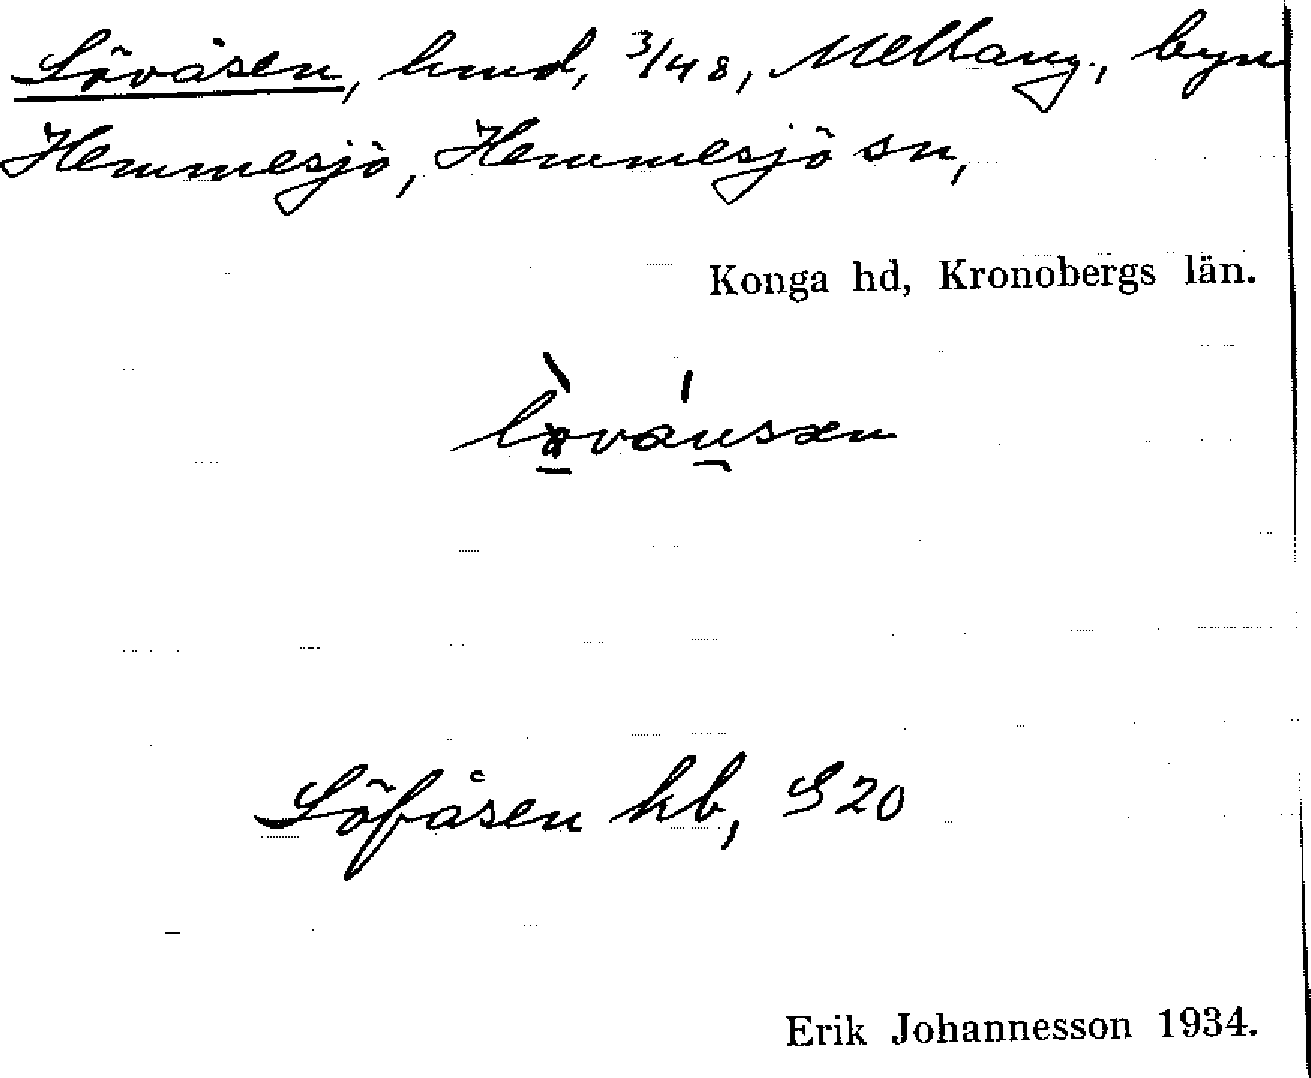 Lövåsen, hmd, 3/48, Mellang., byn
Hemmesjö, Hemmesjö sn,
Konga hd, Kronobergs län.
Löfåsen kb, S 20
Erik Johannesson 1934.